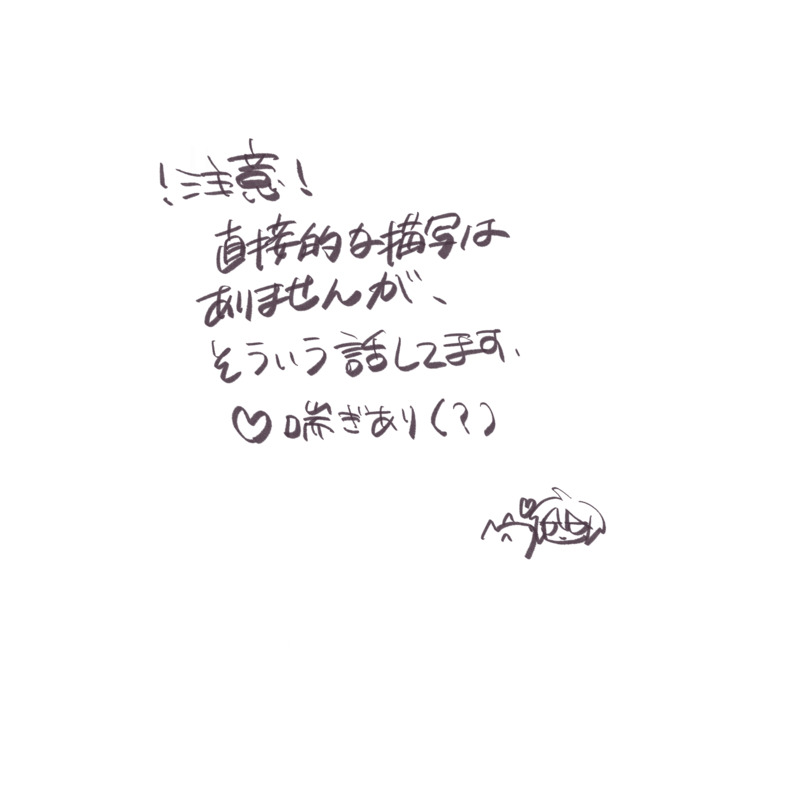 ！注意！
直接的な描写は
ありませんが、
そういう話してます.
♡喘ぎあり(?)